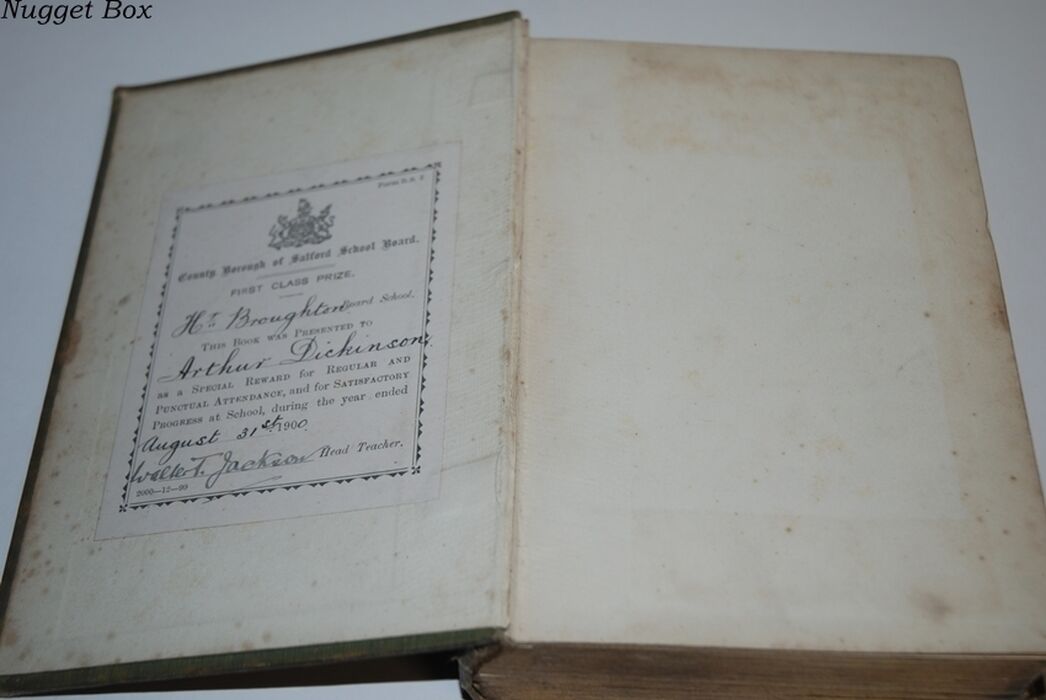 Nugget Box
Form D.S. 2
County Borough of Salford School Board.
FIRST CLASS PRIZE.
Hr. Broughton Board School.
THIS BOOK WAS PRESENTED TO
Arthur Dickinson
as a SPECIAL REWARD for REGULAR AND
PUNCTUAL ATTENDANCE, and for SATISFACTORY
PROGRESS at School, during the year ended
August 31st 1900
Walter T. Jackson Head Teacher.
2000—12—99